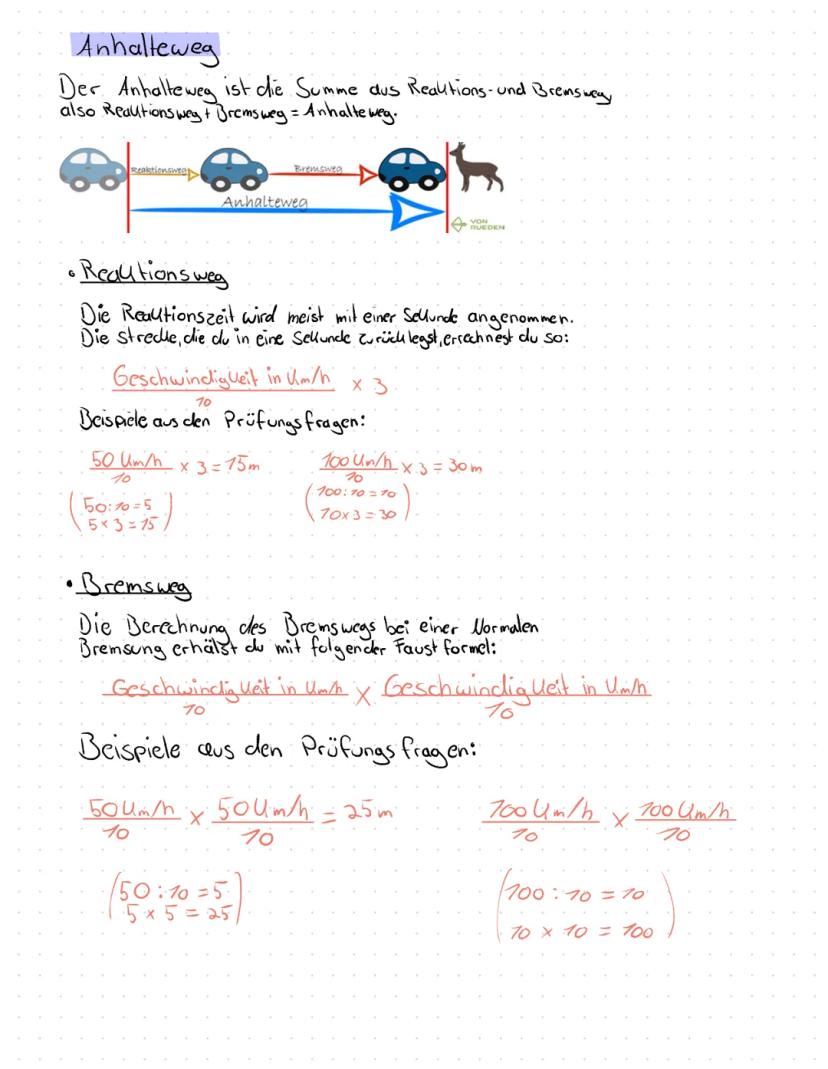 Anhalteweg
Der Anhalteweg ist die Summe aus Reaktions- und Bremsweg,
also Reaktionsweg + Bremsweg = Anhalteweg.
Reaktionsweg
Bremsweg
Anhalteweg
VON
RUEDEN
• Reaktionsweg
Die Reaktionszeit wird meist mit einer Sekunde angenommen.
Die Strecke, die du in eine Sekunde zurücklegst, errechnest du so:
Geschwindigkeit in km/h × 3
10
Beispiele aus den Prüfungsfragen:
50 km/h × 3 = 15m 100 km/h × 3 = 30m
10 10
(50:10=5 (100:10=10
5×3=15) 10×3=30)
• Bremsweg
Die Berechnung des Bremswegs bei einer Normalen
Bremsung erhälst du mit folgender Faustformel:
Geschwindigkeit in km/h × Geschwindigkeit in km/h
10 10
Beispiele aus den Prüfungsfragen:
50 km/h × 50 km/h = 25m 100 km/h × 100 km/h
10 10 10 10
(50:10=5 (100:10=10
5×5=25) 10×10=100)